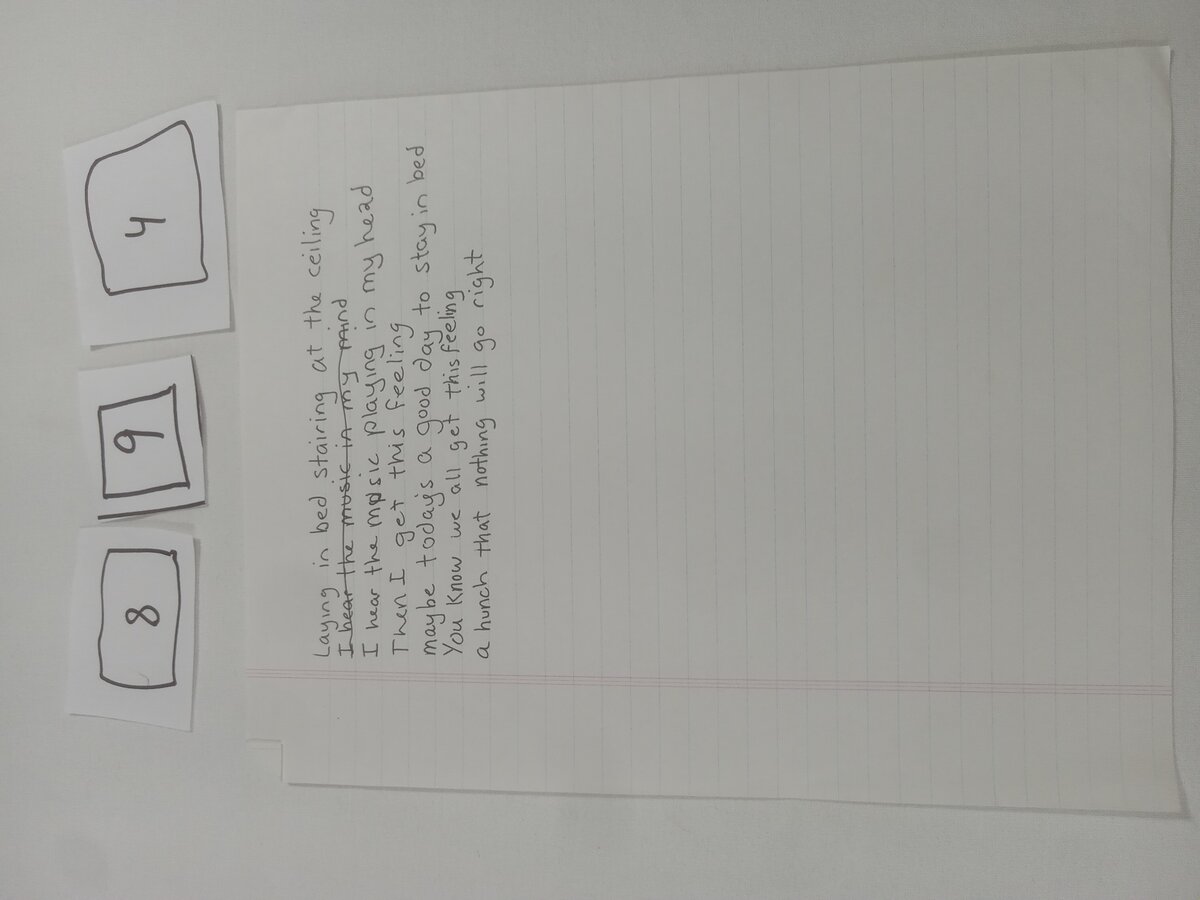 8 9 4
Laying in bed stairing at the ceiling
I hear the music in my mind
I hear the music playing in my head
Then I get this feeling
maybe today's a good day to stay in bed
You know we all get this feeling
a hunch that nothing will go right